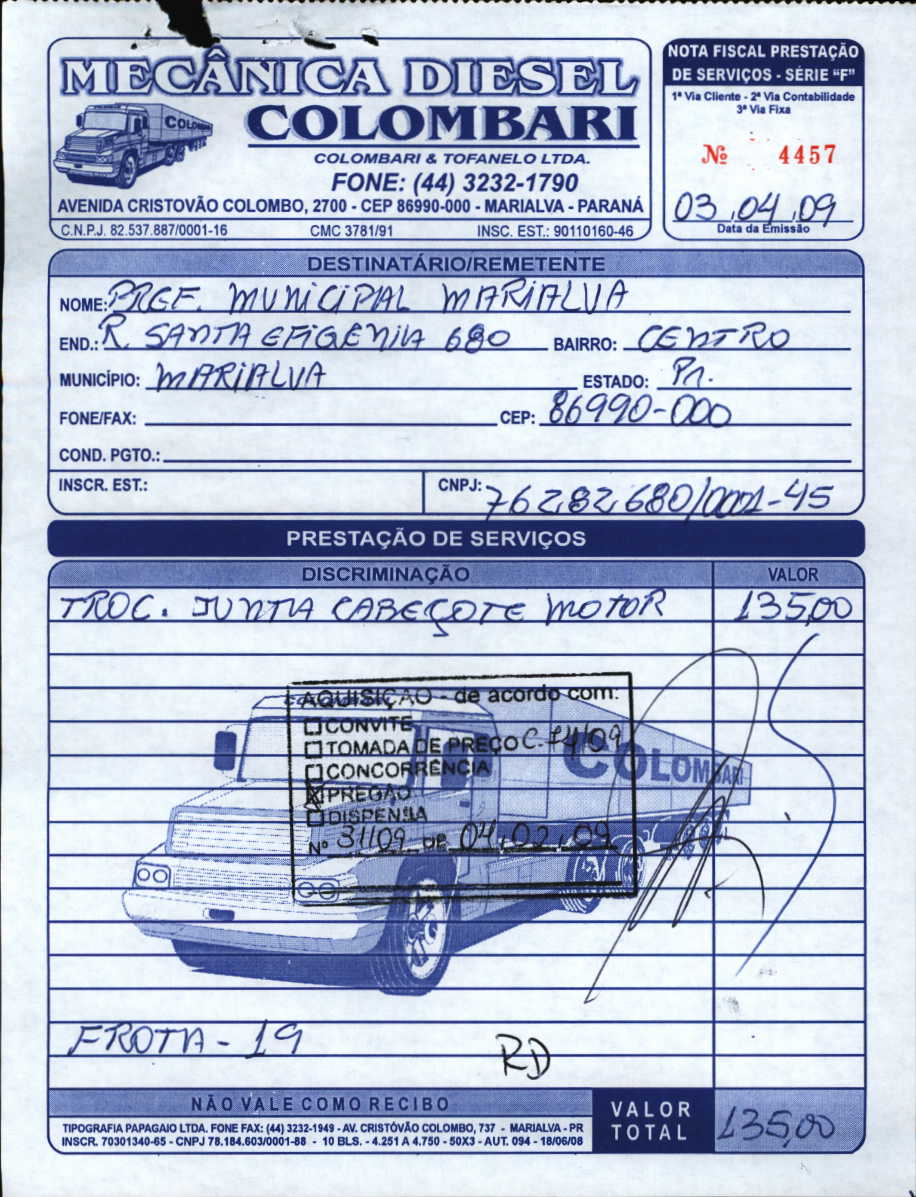 MECÂNICA DIESEL
COLOMBARI
COLOMBARI & TOFANELO LTDA.
FONE: (44) 3232-1790
AVENIDA CRISTOVÃO COLOMBO, 2700 - CEP 86990-000 - MARIALVA - PARANÁ
C.N.P.J. 82.537.887/0001-16 CMC 3781/91 INSC. EST.: 90110160-46
NOTA FISCAL PRESTAÇÃO
DE SERVIÇOS - SÉRIE “F”
1ª Via Cliente - 2ª Via Contabilidade
3ª Via Fixa
Nº 4457
03,04,09
Data da Emissão
DESTINATÁRIO/REMETENTE
NOME: PREF. MUNICIPAL MARIALVA
END.: R. SANTA EFIGÊNIA 680 BAIRRO: CENTRO
MUNICÍPIO: MARIALVA ESTADO: Pr.
FONE/FAX: CEP: 86990-000
COND. PGTO.:
INSCR. EST.: CNPJ: 76282680/0001-45
PRESTAÇÃO DE SERVIÇOS
DISCRIMINAÇÃO VALOR
TROC. JUNTA CABEÇOTE MOTOR 135,00
AQUISIÇÃO - de acordo com:
CONVITE
TOMADA DE PREÇO C. 14/09
CONCORRÊNCIA
PREGÃO
DISPENSA
Nº 31/09 DE 04,02,09
COLOMBARI
FROTA - 19
RD
NÃO VALE COMO RECIBO
TIPOGRAFIA PAPAGAIO LTDA. FONE FAX: (44) 3232-1949 - AV. CRISTÓVÃO COLOMBO, 737 - MARIALVA - PR
INSCR. 70301340-65 - CNPJ 78.184.603/0001-88 - 10 BLS. - 4.251 A 4.750 - 50X3 - AUT. 094 - 18/06/08
VALOR
TOTAL 135,00